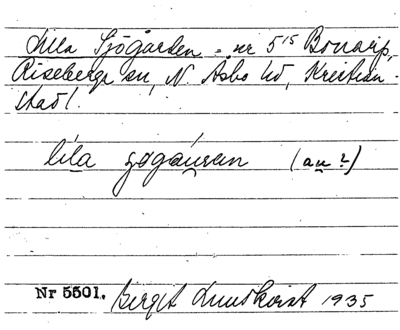 Lilla Sjögården = nr 5¹⁵ Bonarp,
Riseberga sn, N. Åsbo hd, Kristian-
stads l.
lila søgáuṛen (au ?)
Nr 5501. Birgit Lundkvist 1935